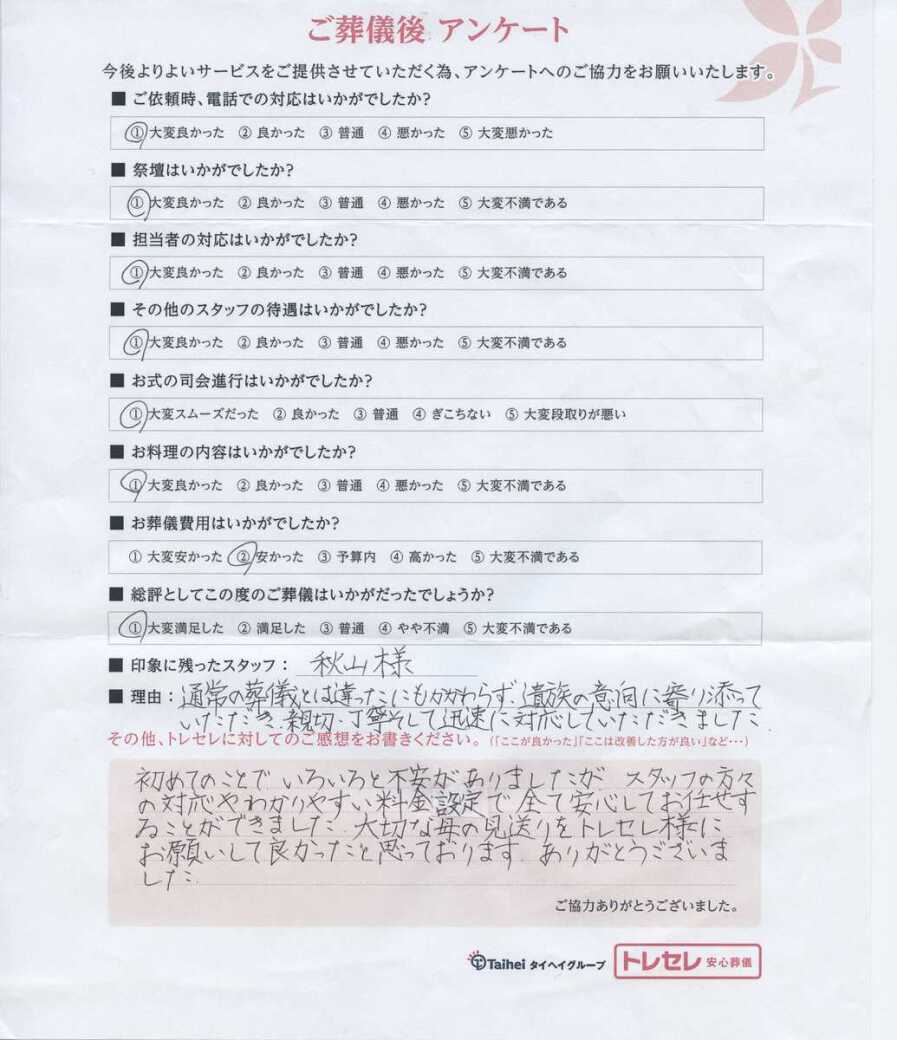 ご葬儀後 アンケート
今後よりよいサービスをご提供させていただく為、アンケートへのご協力をお願いいたします。
■ ご依頼時、電話での対応はいかがでしたか?
① 大変良かった ② 良かった ③ 普通 ④ 悪かった ⑤ 大変悪かった
■ 祭壇はいかがでしたか?
① 大変良かった ② 良かった ③ 普通 ④ 悪かった ⑤ 大変不満である
■ 担当者の対応はいかがでしたか?
① 大変良かった ② 良かった ③ 普通 ④ 悪かった ⑤ 大変不満である
■ その他のスタッフの待遇はいかがでしたか?
① 大変良かった ② 良かった ③ 普通 ④ 悪かった ⑤ 大変不満である
■ お式の司会進行はいかがでしたか?
① 大変スムーズだった ② 良かった ③ 普通 ④ ぎこちない ⑤ 大変段取りが悪い
■ お料理の内容はいかがでしたか?
① 大変良かった ② 良かった ③ 普通 ④ 悪かった ⑤ 大変不満である
■ お葬儀費用はいかがでしたか?
① 大変安かった ② 安かった ③ 予算内 ④ 高かった ⑤ 大変不満である
■ 総評としてこの度のご葬儀はいかがだったでしょうか?
① 大変満足した ② 満足した ③ 普通 ④ やや不満 ⑤ 大変不満である
■ 印象に残ったスタッフ: 秋山様
■ 理由: 通常の葬儀とは違ったにもかかわらず、遺族の意向に寄り添って
いただき、親切、丁寧そして迅速に対応していただきました
その他、トレセレに対してのご感想をお書きください。(「ここが良かった」「ここは改善した方が良い」など・・・)
初めてのことで いろいろと不安がありましたが、スタッフの方々
の対応やわかりやすい料金設定で 全て安心してお任せす
ることができました。大切な母の見送りをトレセレ様に
お願いして良かったと思っております。ありがとうございま
した。
ご協力ありがとうございました。
Taihei タイヘイグループ トレセレ 安心葬儀